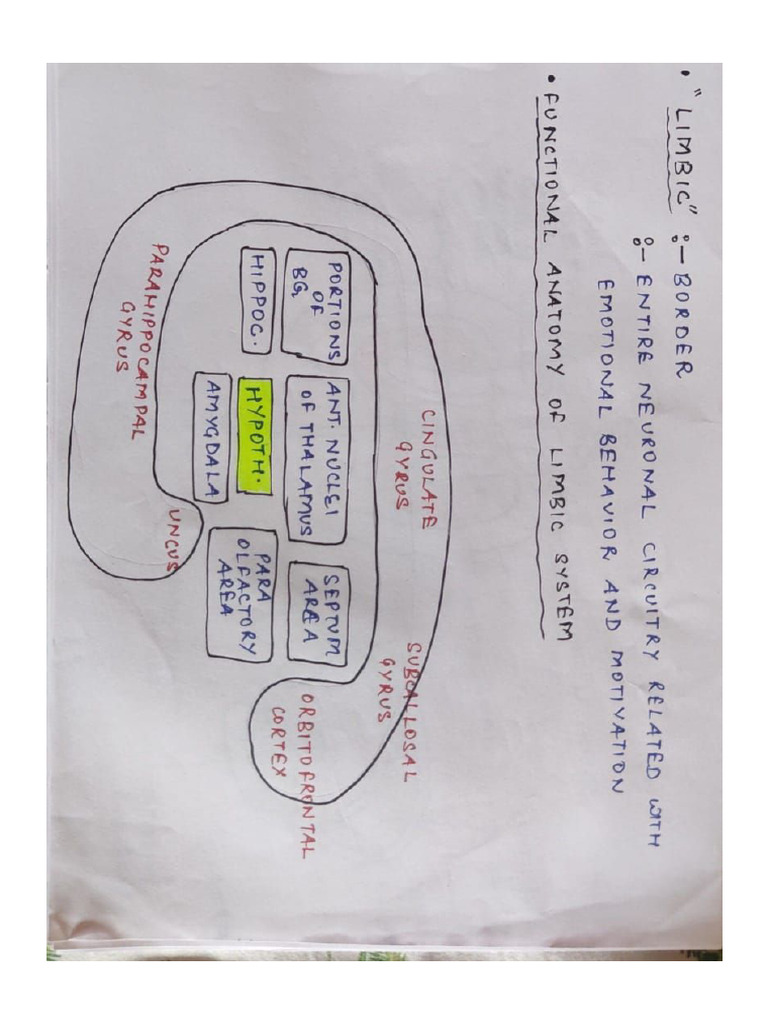 • "LIMBIC" :- BORDER
:- ENTIRE NEURONAL CIRCUITRY RELATED WITH
EMOTIONAL BEHAVIOR AND MOTIVATION
• FUNCTIONAL ANATOMY OF LIMBIC SYSTEM
CINGULATE
GYRUS
SUBCALLOSAL
GYRUS
PORTIONS
OF
BG
ANT. NUCLEI
OF THALAMUS
SEPTUM
AREA
ORBITOFRONTAL
CORTEX
HIPPOC.
HYPOTH.
PARA
OLFACTORY
AREA
AMYGDALA
UNCUS
PARAHIPPOCAMPAL
GYRUS